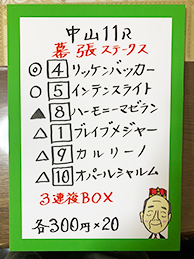 中山11R
幕張ステークス
◎ 4 リッケンバッカー
○ 5 インテンスライト
▲ 8 ハーモニーマゼラン
△ 1 ブレイブメジャー
△ 9 カルリーノ
△ 10 オパールシャルム
3連複BOX
各300円×20